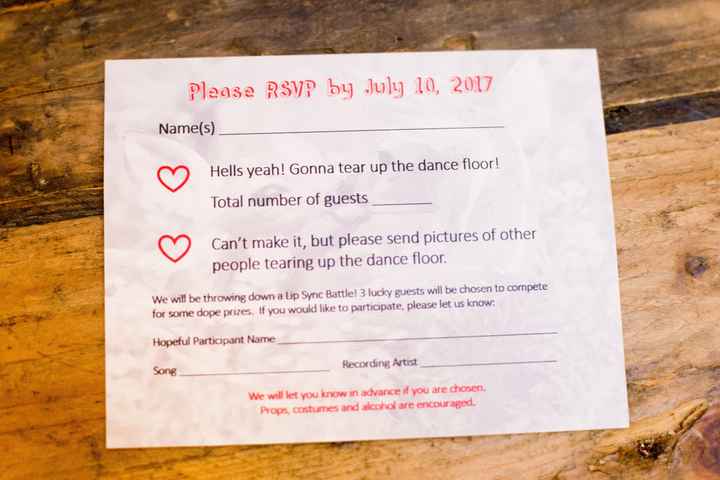 Please RSVP by July 10, 2017
Name(s)
Hells yeah! Gonna tear up the dance floor!
Total number of guests
Can't make it, but please send pictures of other
people tearing up the dance floor.
We will be throwing down a Lip Sync Battle! 3 lucky guests will be chosen to compete
for some dope prizes. If you would like to participate, please let us know:
Hopeful Participant Name
Song Recording Artist
We will let you know in advance if you are chosen.
Props, costumes and alcohol are encouraged.